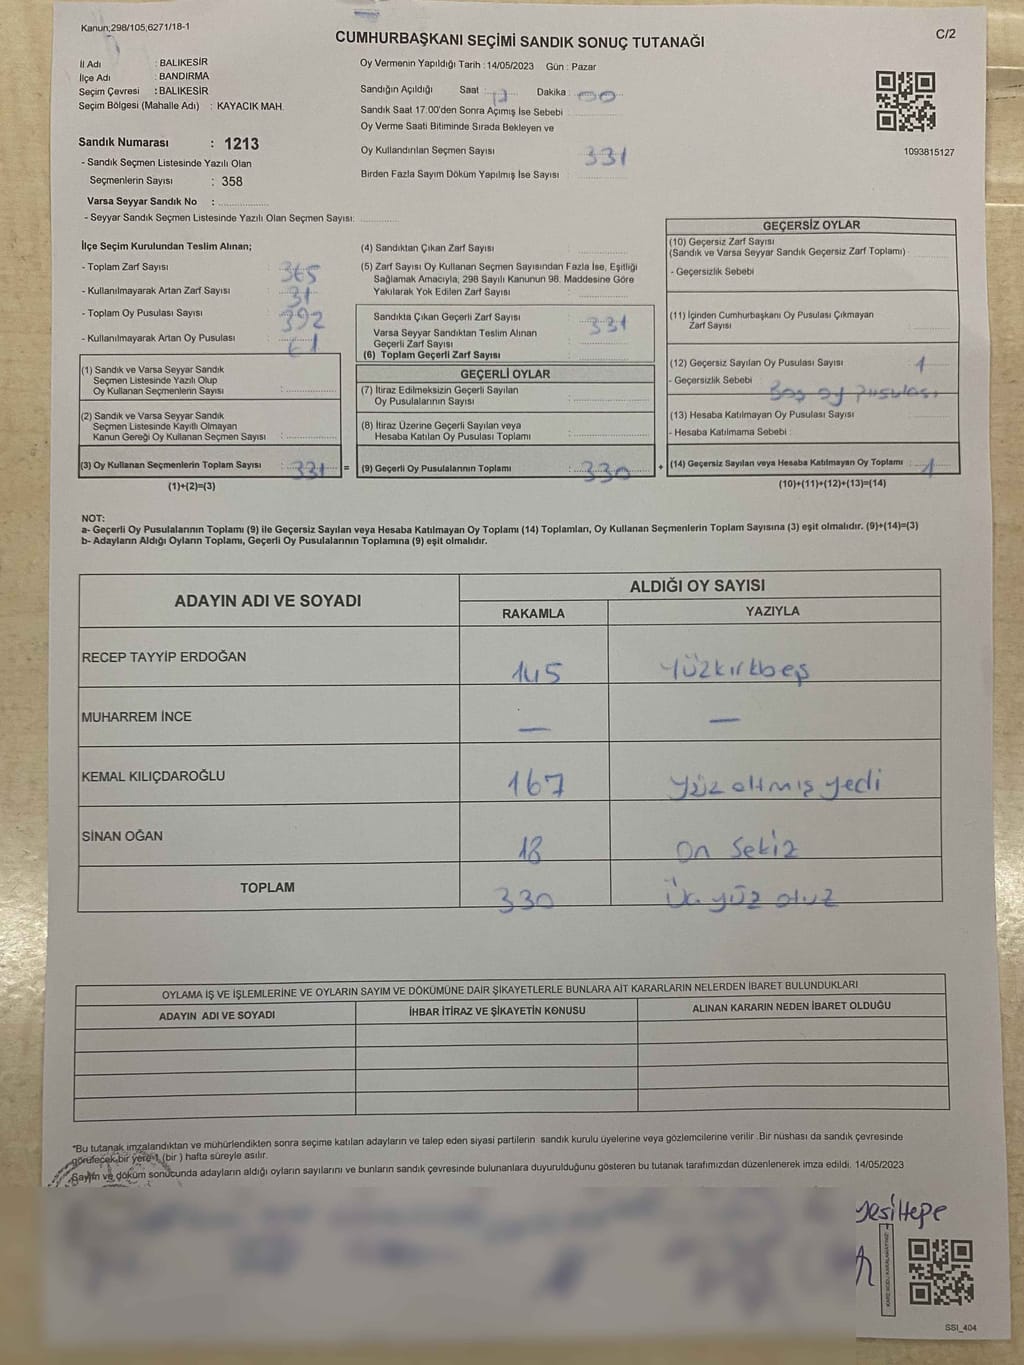 Kanun;298/105;6271/18-1
CUMHURBAŞKANI SEÇİMİ SANDIK SONUÇ TUTANAĞI
C/2
İl Adı : BALIKESİR
İlçe Adı : BANDIRMA
Seçim Çevresi : BALIKESİR
Seçim Bölgesi (Mahalle Adı) : KAYACIK MAH.
Sandık Numarası : 1213
- Sandık Seçmen Listesinde Yazılı Olan
Seçmenlerin Sayısı : 358
Varsa Seyyar Sandık No :
- Seyyar Sandık Seçmen Listesinde Yazılı Olan Seçmen Sayısı:
Oy Vermenin Yapıldığı Tarih : 14/05/2023 Gün : Pazar
Sandığın Açıldığı Saat : 17 Dakika : 00
Sandık Saat 17:00'den Sonra Açımış İse Sebebi
Oy Verme Saati Bitiminde Sırada Bekleyen ve
Oy Kullandırılan Seçmen Sayısı 331
Birden Fazla Sayım Döküm Yapılmış İse Sayısı
1093815127
İlçe Seçim Kurulundan Teslim Alınan;
- Toplam Zarf Sayısı : 365
- Kullanılmayarak Artan Zarf Sayısı : 31
- Toplam Oy Pusulası Sayısı : 392
- Kullanılmayarak Artan Oy Pusulası : 61
(1) Sandık ve Varsa Seyyar Sandık
Seçmen Listesinde Yazılı Olup
Oy Kullanan Seçmenlerin Sayısı :
(2) Sandık ve Varsa Seyyar Sandık
Seçmen Listesinde Kayıtlı Olmayan
Kanun Gereği Oy Kullanan Seçmen Sayısı :
(3) Oy Kullanan Seçmenlerin Toplam Sayısı : 331 =
(1)+(2)=(3)
(4) Sandıktan Çıkan Zarf Sayısı :
(5) Zarf Sayısı Oy Kullanan Seçmen Sayısından Fazla İse, Eşitliği
Sağlamak Amacıyla; 298 Sayılı Kanunun 98. Maddesine Göre
Yakılarak Yok Edilen Zarf Sayısı :
Sandıkta Çıkan Geçerli Zarf Sayısı : 331
Varsa Seyyar Sandıktan Teslim Alınan
Geçerli Zarf Sayısı :
(6) Toplam Geçerli Zarf Sayısı :
GEÇERLİ OYLAR
(7) İtiraz Edilmeksizin Geçerli Sayılan
Oy Pusulalarının Sayısı :
(8) İtiraz Üzerine Geçerli Sayılan veya
Hesaba Katılan Oy Pusulası Toplamı :
(9) Geçerli Oy Pusulalarının Toplamı : 330 +
GEÇERSİZ OYLAR
(10) Geçersiz Zarf Sayısı
(Sandık ve Varsa Seyyar Sandık Geçersiz Zarf Toplamı)
- Geçersizlik Sebebi :
(11) İçinden Cumhurbaşkanı Oy Pusulası Çıkmayan
Zarf Sayısı :
(12) Geçersiz Sayılan Oy Pusulası Sayısı : 1
- Geçersizlik Sebebi : Boş oy Pusulası
(13) Hesaba Katılmayan Oy Pusulası Sayısı :
- Hesaba Katılmama Sebebi :
(14) Geçersiz Sayılan veya Hesaba Katılmayan Oy Toplamı : 1
(10)+(11)+(12)+(13)=(14)
NOT:
a- Geçerli Oy Pusulalarının Toplamı (9) ile Geçersiz Sayılan veya Hesaba Katılmayan Oy Toplamı (14) Toplamları, Oy Kullanan Seçmenlerin Toplam Sayısına (3) eşit olmalıdır. (9)+(14)=(3)
b- Adayların Aldığı Oyların Toplamı, Geçerli Oy Pusulalarının Toplamına (9) eşit olmalıdır.
ADAYIN ADI VE SOYADI
ALDIĞI OY SAYISI
RAKAMLA YAZIYLA
RECEP TAYYİP ERDOĞAN 145 Yüzkırkbeş
MUHARREM İNCE — —
KEMAL KILIÇDAROĞLU 167 Yüz altmış yedi
SİNAN OĞAN 18 On Sekiz
TOPLAM 330 Üç yüz otuz
OYLAMA İŞ VE İŞLEMLERİNE VE OYLARIN SAYIM VE DÖKÜMÜNE DAİR ŞİKAYETLERLE BUNLARA AİT KARARLARIN NELERDEN İBARET BULUNDUKLARI
ADAYIN ADI VE SOYADI İHBAR İTİRAZ VE ŞİKAYETİN KONUSU ALINAN KARARIN NEDEN İBARET OLDUĞU
*Bu tutanak imzalandıktan ve mühürlendikten sonra seçime katılan adayların ve talep eden siyasi partilerin sandık kurulu üyelerine veya gözlemcilerine verilir .Bir nüshası da sandık çevresinde
görülecek bir yere 1 (bir ) hafta süreyle asılır.
Sayım ve döküm sonucunda adayların aldığı oyların sayılarını ve bunların sandık çevresinde bulunanlara duyurulduğunu gösteren bu tutanak tarafımızdan düzenlenerek imza edildi. 14/05/2023
yesiltepe
SSI_404